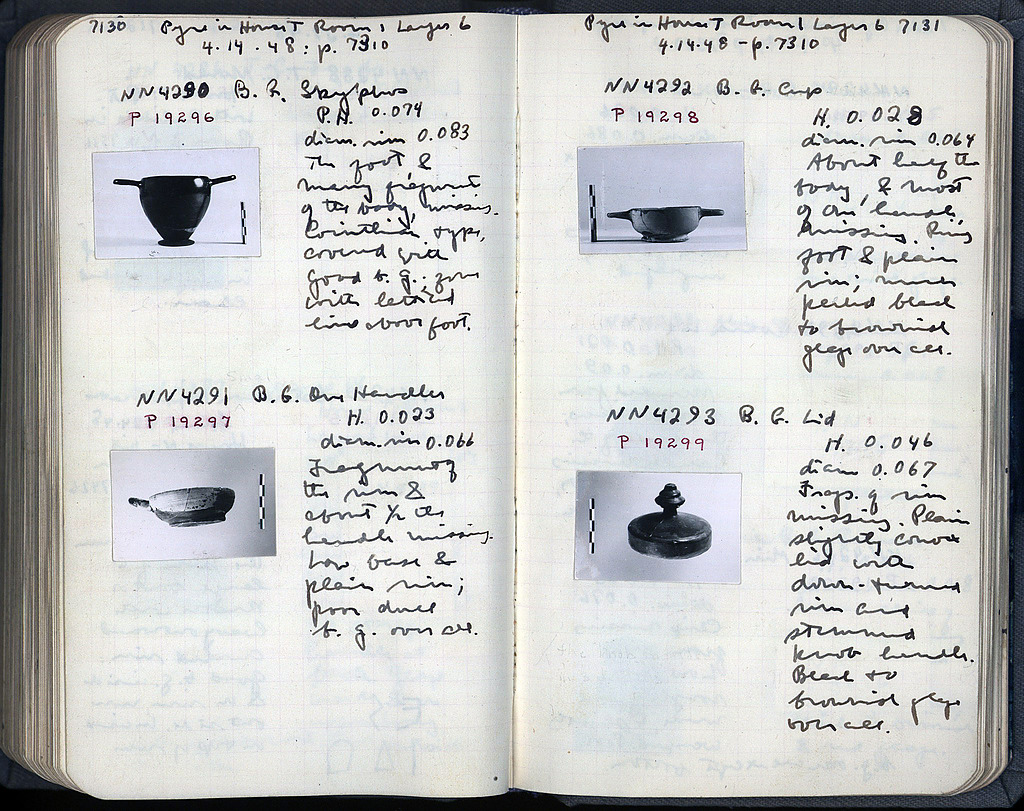 7130 Pyre in House T Room 1 Layer 6
4.14.48: p. 7310
NN4290 B. G. Skyphos
P 19296
P.H. 0.074
diam. rim 0.083
The foot &
many fragments
of the body, missing.
Corinthian type,
covered with
good b. g.; zone
with
line above foot.
NN4291 B. G. One Handler
P 19297
H. 0.023
diam. rim 0.066
Fragment of
the rim &
about 1/2 the
handle missing.
Low base &
plain rim;
poor dull
b. g. over all.
Pyre in House T Room 1 Layer 6 7131
4.14.48 - p. 7310
NN4292 B. G. Cup
P 19298
H. 0.028
diam. rim 0.064
About half the
body, & most
of one handle,
missing. Ring
foot & plain
rim; much
peeled black
to brownish
glaze over all.
NN4293 B. G. Lid
P 19299
H. 0.046
diam 0.067
Frags. of rim
missing. Plain
slightly convex
lid with
down-turned
rim and
stemmed
knob handle.
Black to
brownish glaze
over all.